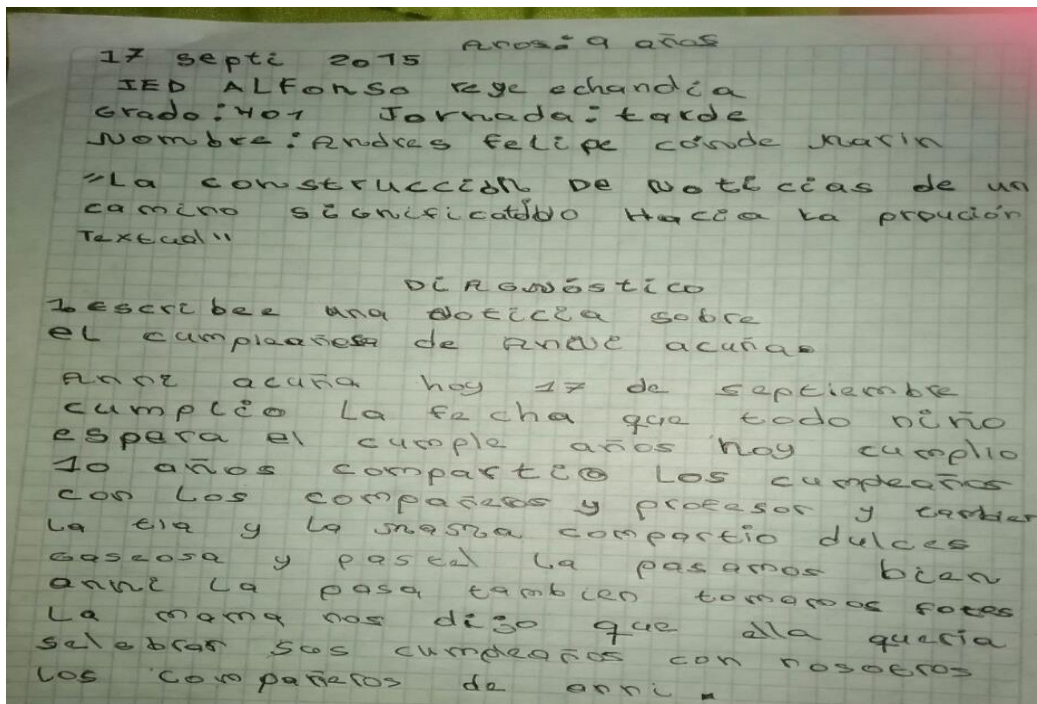 Años: 9 años
17 septi 2015
IED ALFonso reye echandia
Grado: 401 Jornada: tarde
Nombre: Andres felipe conde marin
"La construcción De Noticias de un
camino significativo Hacia La proución
Textual"
Diagnóstico
1 escribee una noticia sobre
el cumpleañosa de anni acuña.
Anni acuña hoy 17 de septiembre
cumplio La fecha que todo niño
espera el cumple años hoy cumplio
10 años compartio Los cumpleaños
con Los compañeros y profesor y tambier
La tia y La mama compartio dulces
gaseosa y pastel La pasamos bien
anni La pasa tambien tomamos fotos
La mama nos dijo que ella queria
selebrar sus cumpleaños con nosotros
Los compañeros de anni.